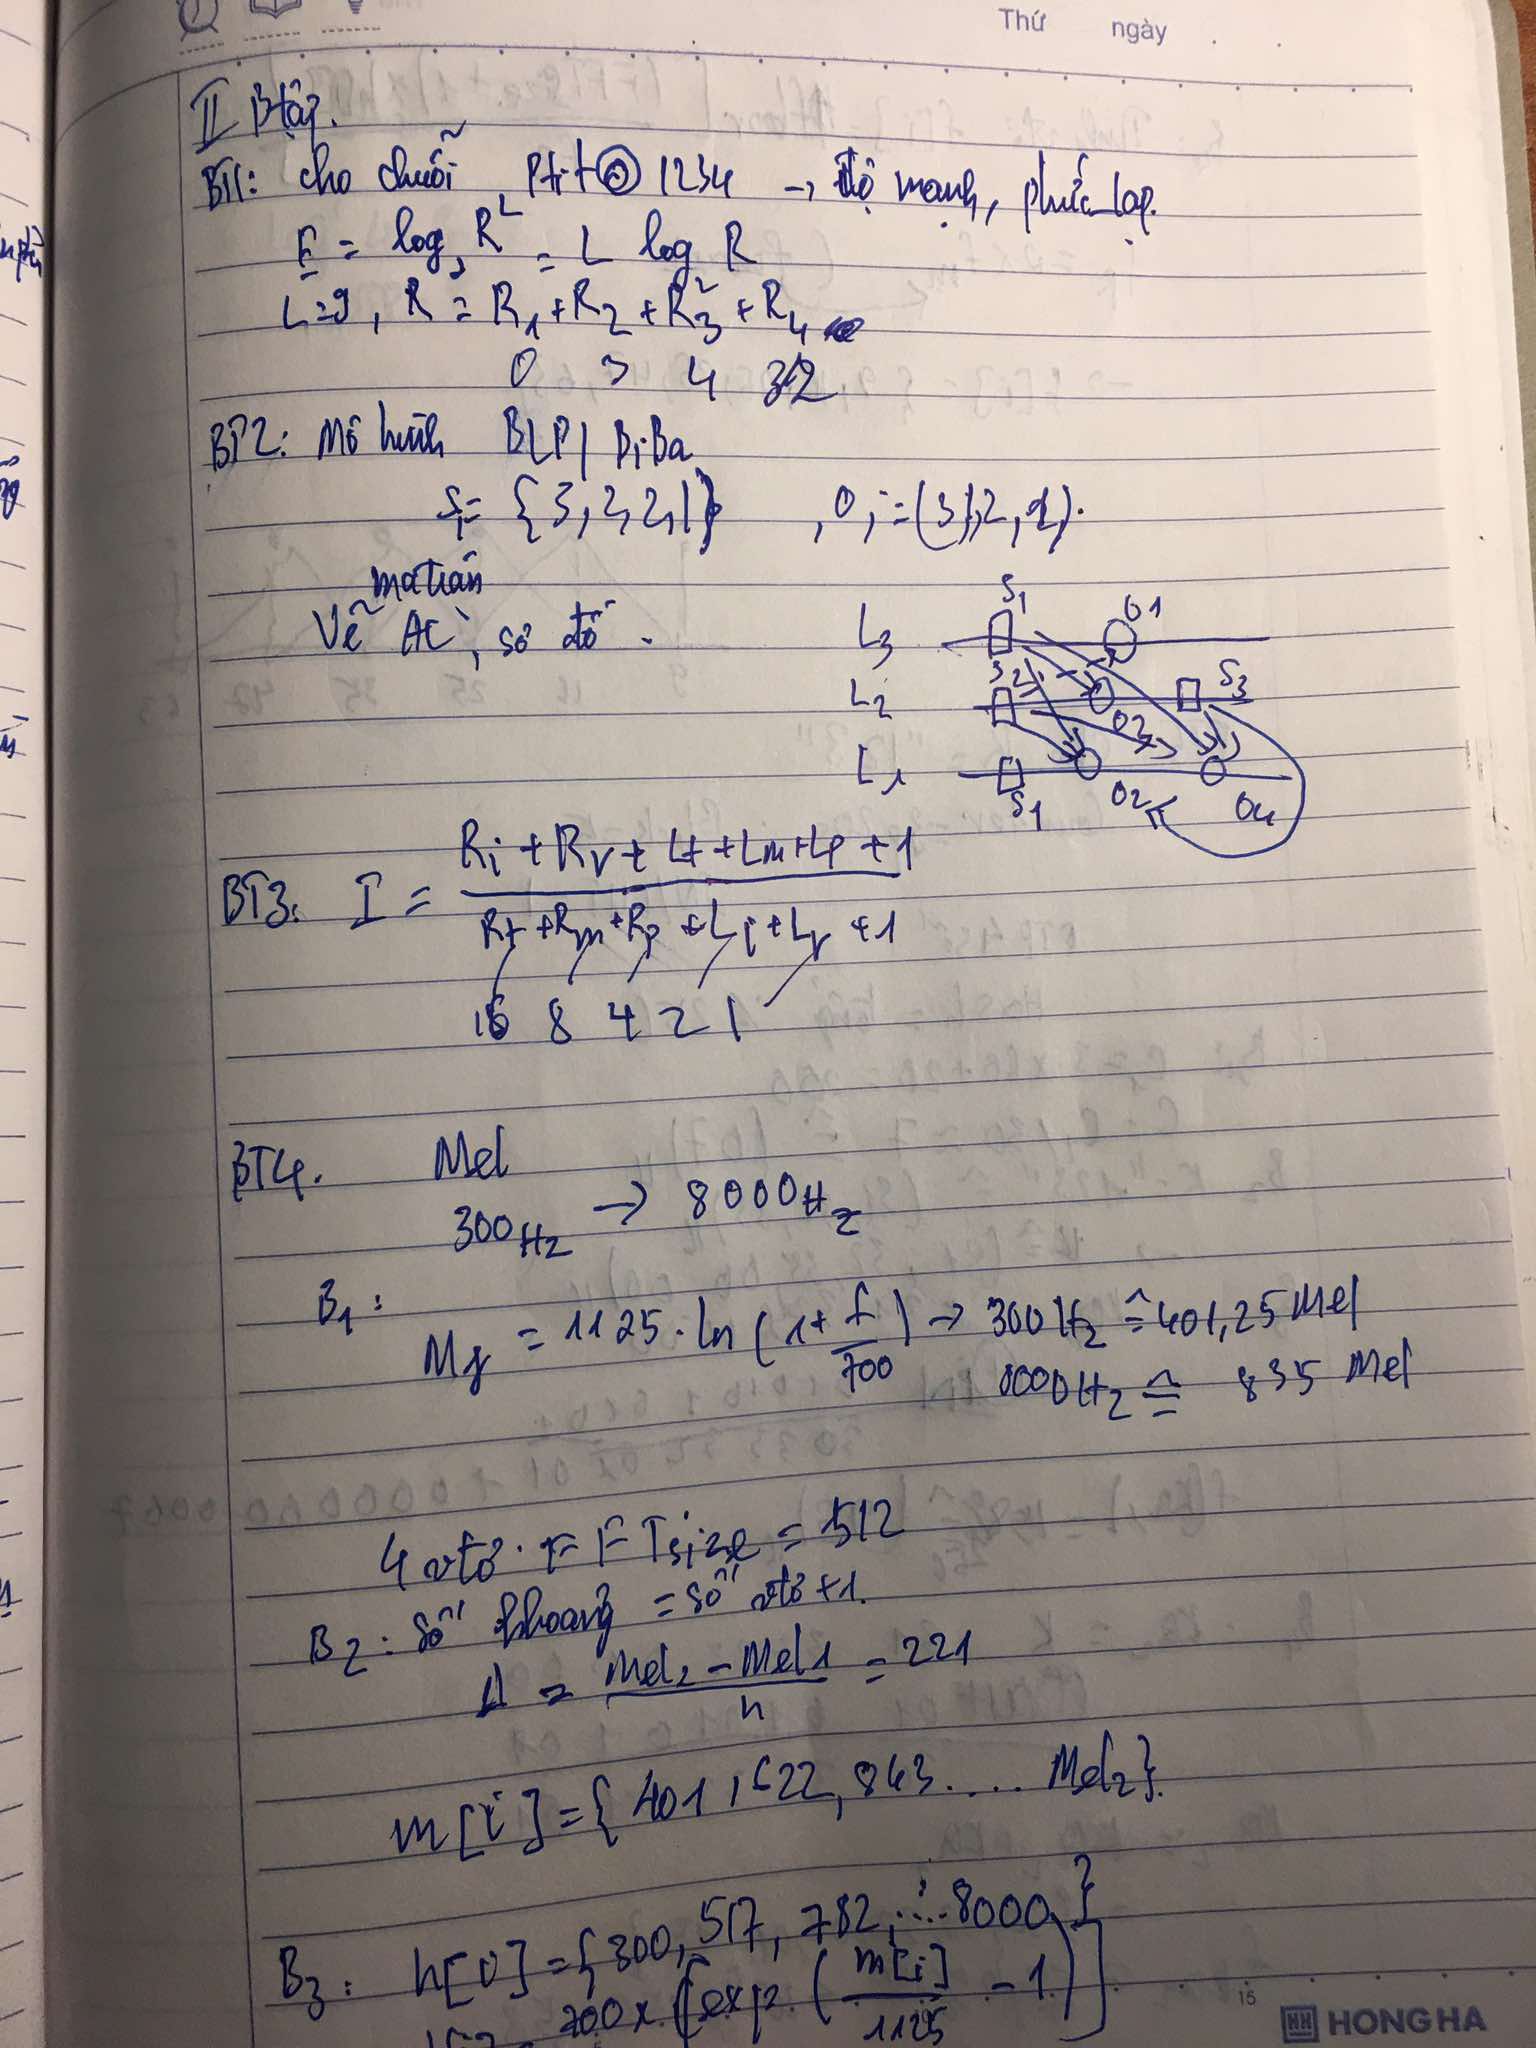 Thứ ngày
II Btập.
BT1: cho chuỗi Ptit@1234 → độ mạnh, phức tạp.
E = log₂ R^L = L log R
L=9, R = R₁+R₂+R₃+R₄
BT2: Mô hình BLP/ BiBa
ma trận
Vẽ AC, sơ đồ.
L₃ S₁ O1
L₂ S₂ O3 S₃
L₁ S₁ O₂ O4
BT3: I = (Ri + Rr + Lt + Lm + Lp + 1) / (Rt + Rm + Rp + Li + Lr + 1)
16 8 4 2 1
BT4. Mel
300Hz → 8000Hz
B₁:
Mf = 1125.ln(1+ f/700) → 300Hz ≙ 401,25 Mel
8000Hz ≙ 835 Mel
4 vtơ. FFTsize = 512
B₂: số khoảng = số vtơ+1.
Δ = (Mel₂ - Mel1)/n = 221
m[i] = {401, 622, 843.... Mel₂}.
B₃: h[i] = {300, 517, 782, .... 8000}
700 x [exp (m[i]/1125 - 1)]
15
HH HONG HA